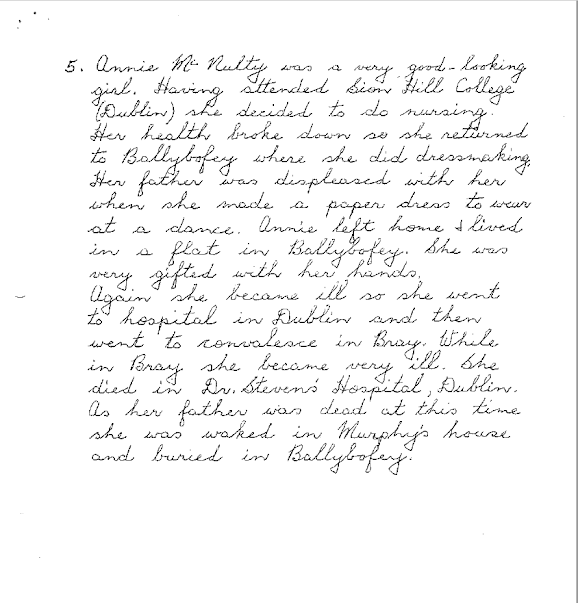 5. Annie Mc Nulty was a very good-looking
girl. Having attended Sion Hill College
(Dublin) she decided to do nursing.
Her health broke down so she returned
to Ballybofey where she did dressmaking.
Her father was displeased with her
when she made a paper dress to wear
at a dance. Annie left home & lived
in a flat in Ballybofey. She was
very gifted with her hands.
Again she became ill so she went
to hospital in Dublin and then
went to convalesce in Bray. While
in Bray she became very ill. She
died in Dr. Stevens' Hospital, Dublin.
As her father was dead at this time
she was waked in Murphy's house
and buried in Ballybofey.